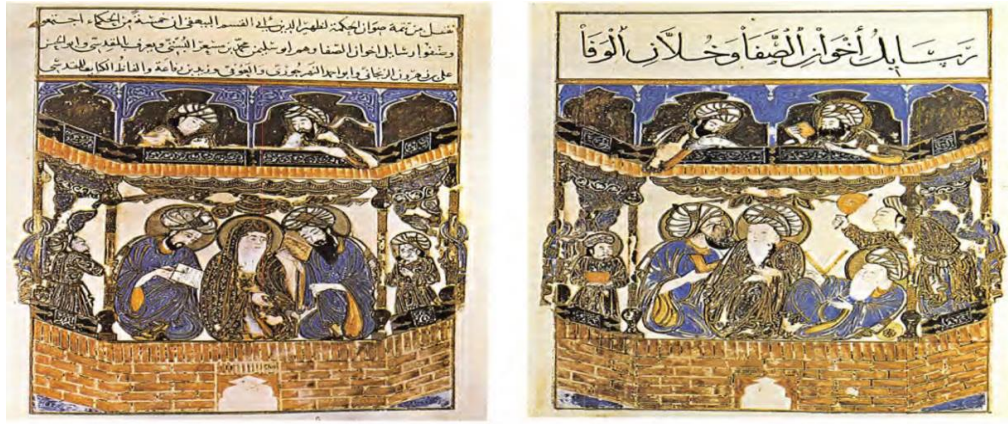 رسايل أخوان الصفا وخلان الوفا
نقل من تتمة صوان الحكمة لظهير الدين أبى القسم البيهقى ان خمسة من الحكماء اجتمعو
وصنفوا رسايل اخوان الصفا وهم ابو سليمن محمد بن مسعر البستى ويعرف بالمقدسى وابو الحسن
على بن هرون الزنجانى وابو احمد النهرجورى والعوفى وزيد بن رفاعة والفاظ الكتاب للمقدسى